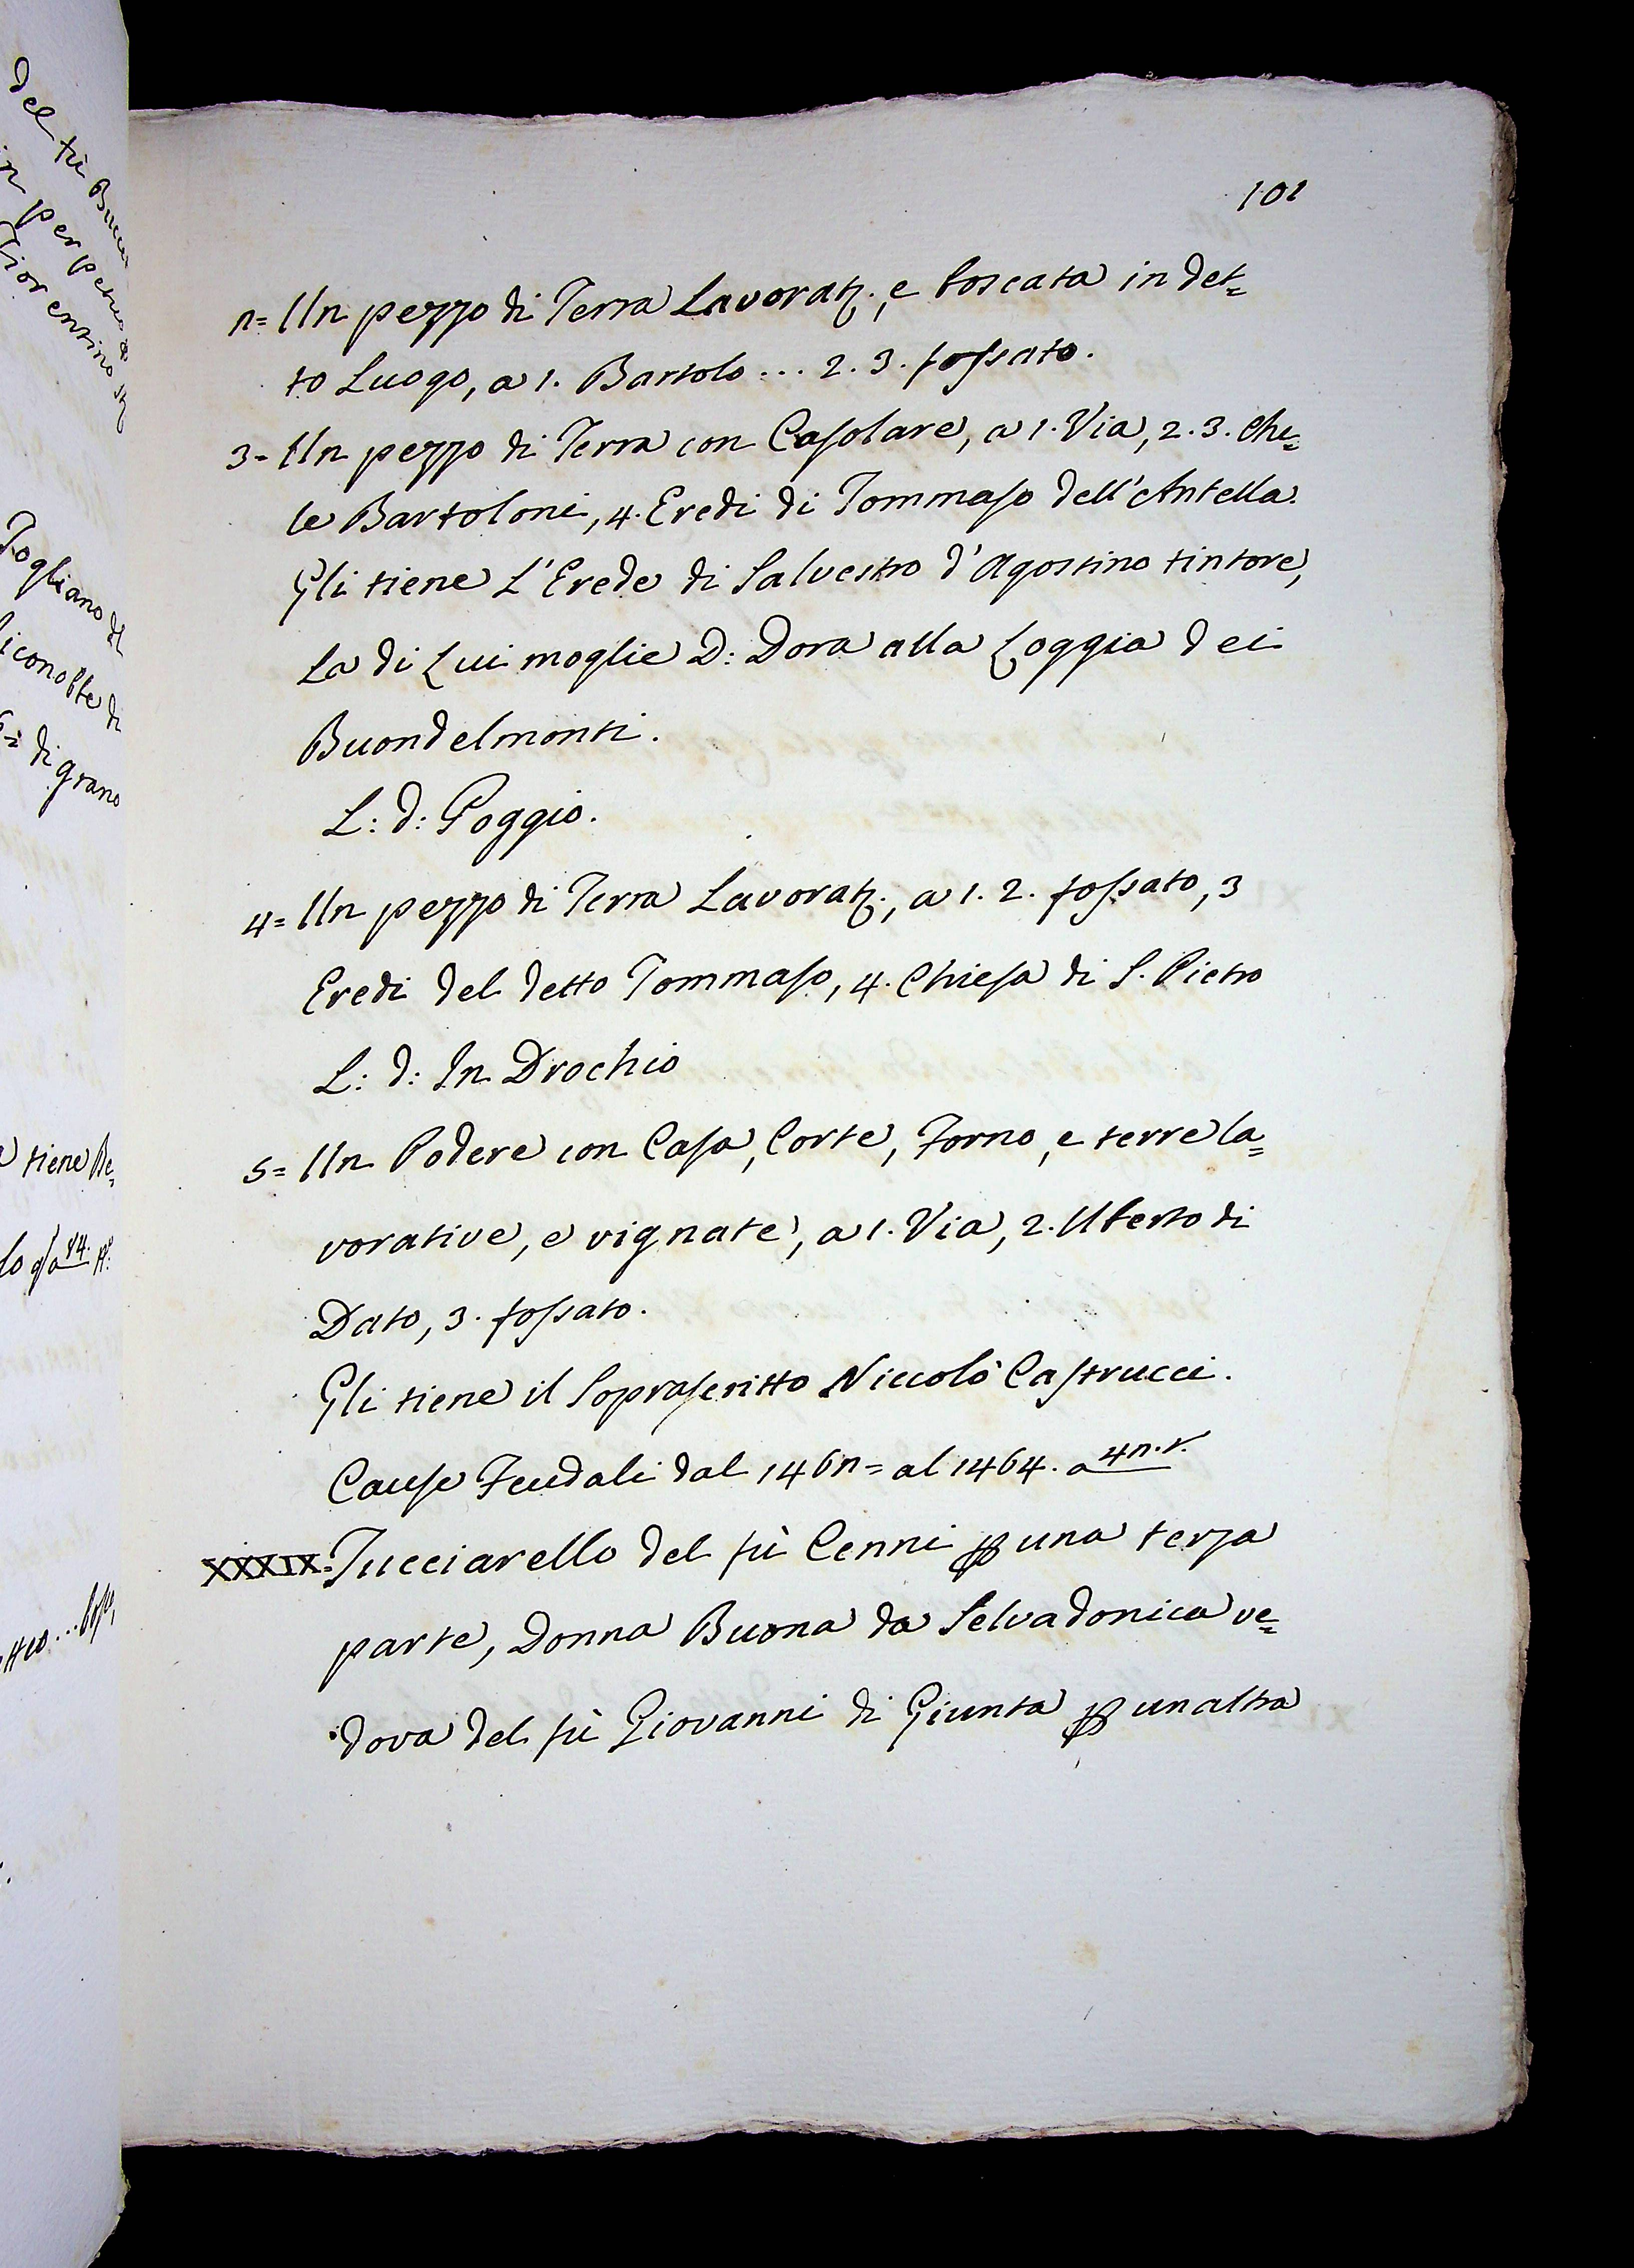 del fù
in perpetuo
Fiorentino
Togliano
di grano
tiene Be=
101
2= Un pezzo di Terra Lavorat., e boscata in det=
to Luogo, a 1. Bartolo... 2. 3. fossato.
3= Un pezzo di Terra con Casolare, a 1. Via, 2. 3. Che=
le Bartoloni, 4. Eredi di Tommaso dell'Antella.
Gli tiene L'Erede di Salvestro d'Agostino tintore,
La di Lui moglie D: Dora alla Loggia dei
Buondelmonti.
L: d: Poggio.
4= Un pezzo di Terra Lavorat., a 1. 2. fossato, 3
Eredi del detto Tommaso, 4. Chiesa di S. Pietro
L: d: In Drochio
5= Un Podere con Casa, Corte, Forno, e terre la=
vorative, e vignate, a 1. Via, 2. Uberto di
Dato, 3. fossato.
Gli tiene il Soprascritto Niccolò Castrucci.
Cause Feudali dal 1462= al 1464. a 42. r.
XXXIX= Tucciarello del fù Cenni p una terza
parte, Donna Buona da Selvadonica ve=
dova del fù Giovanni di Giunta p unaltra